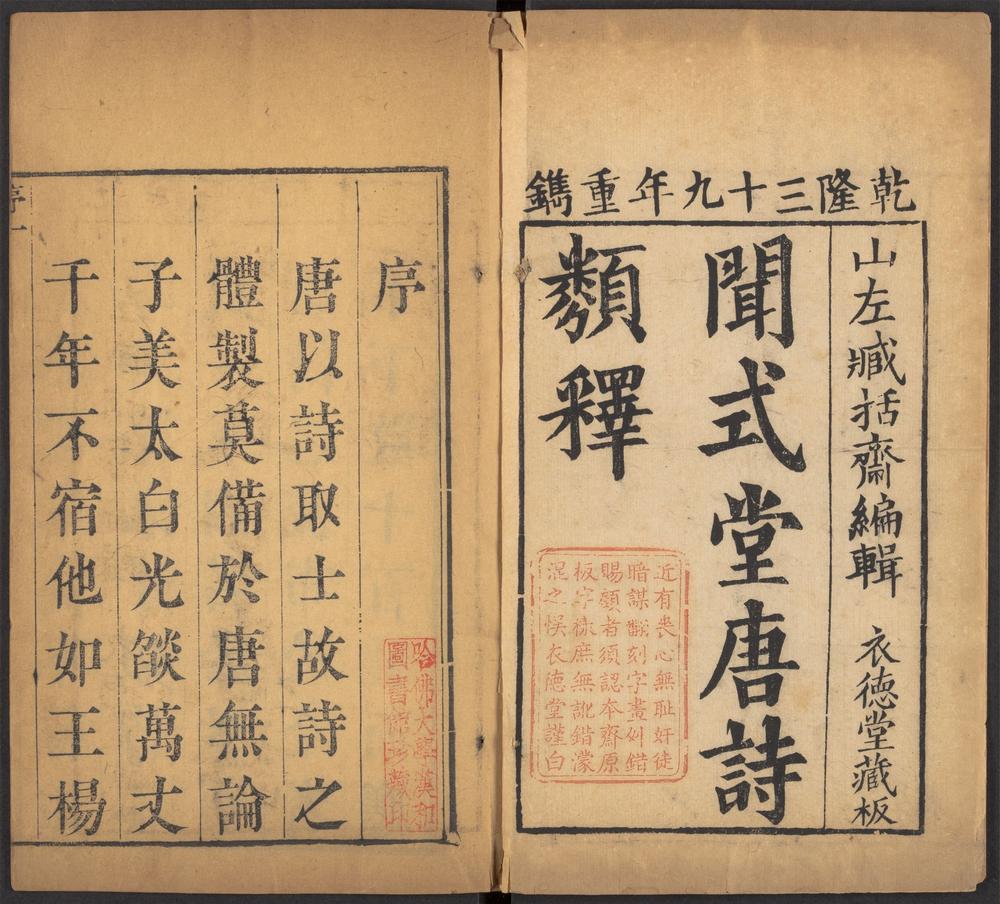 乾隆三十九年重鐫
山左臧括齋編輯 衣德堂藏板
聞式堂唐詩
類釋
近有喪心無耻奸徒
暗謀翻刻字畫舛錯
賜顧者須認本齋原
板字樣庶無訛錯濛
混之悞衣德堂謹白
序
唐以詩取士故詩之
體製莫備於唐無論
子美太白光燄萬丈
千年不宿他如王楊
哈佛大學漢和
圖書館珍藏印
序一